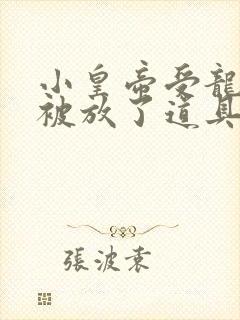 小皇帝受龍
被放了道具
張波袁